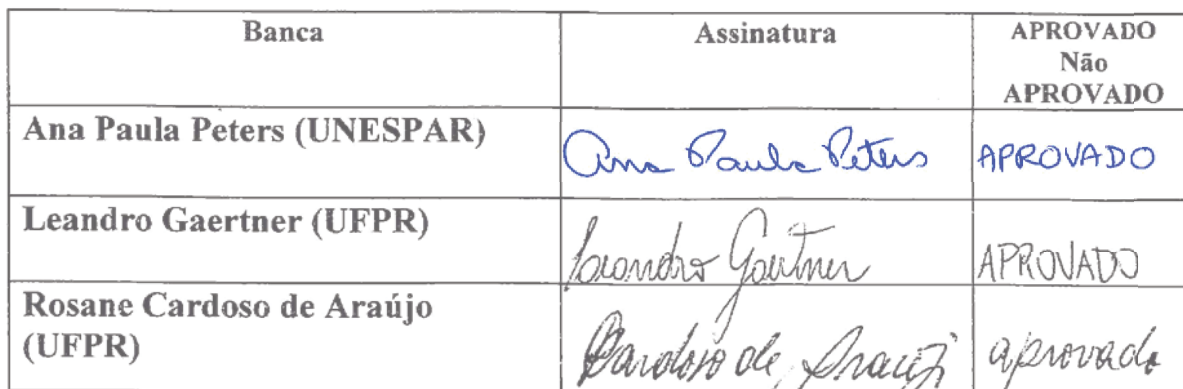 Banca Assinatura APROVADO
Não
APROVADO
Ana Paula Peters (UNESPAR) Ana Paula Peters APROVADO
Leandro Gaertner (UFPR) Leandro Gaertner APROVADO
Rosane Cardoso de Araújo
(UFPR) Cardoso de Araújo aprovado